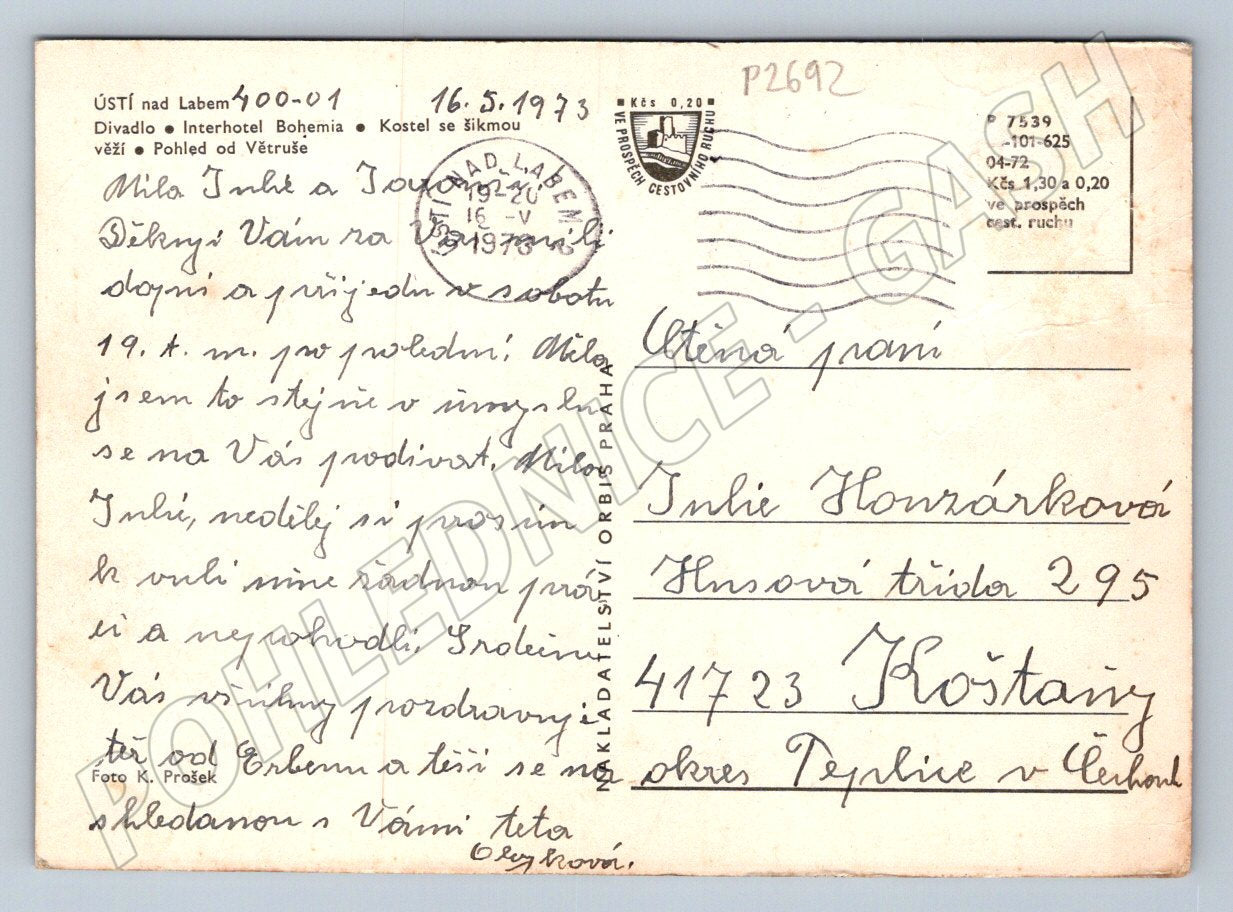 P2692
ÚSTÍ nad Labem 400-01 16.5.1973
Divadlo ● Interhotel Bohemia ● Kostel se šikmou
věží ● Pohled od Větruše
Milá Julié a
Děkuji Vám za Váš milý
dopis a přijedu v sobotu
19. t. m. po poledni! Měla
jsem to stejně v úmyslu
se na Vás podívat. Milá
Julié, nedělej si prosím
k vuli mně žádnou prá
ci a nepohodli. Srdečně
Vás všichny pozdravuji
též od Erbenu a těší se na
Foto K. Prošek
shledanou s Vámi teta
ÚSTÍ NAD LABEM 2
19-20
16 -V
1973
■ Kčs 0,20 ■
VE PROSPĚCH CESTOVNÍHO RUCHU
P 7539
-101-625
04-72
Kčs 1,30 a 0,20
ve prospěch
cest. ruchu
NAKLADATELSTVÍ ORBIS PRAHA
Ctěná paní
Julie Honzárková
Husová třída 295
41723 Košťany
okres Teplice v Čechach
POHLEDNICE - GASH